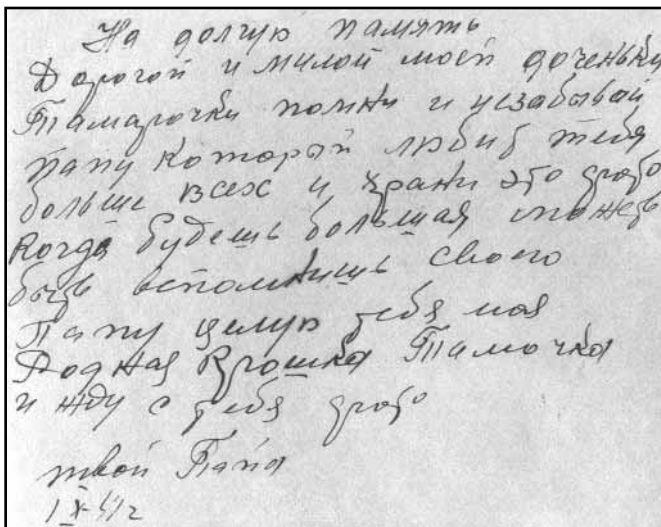 На долгую память
Дорогой и милой моей доченьки
Тамарочки помни и незабывай
папу который любит тебя
больше всех и храни это фото
Когда будешь большая может
быть вспомнишь своего
Папу целую тебя моя
Родная Крошка Тамочка
и жду с тебя фото
твой Папа
1 X-41г